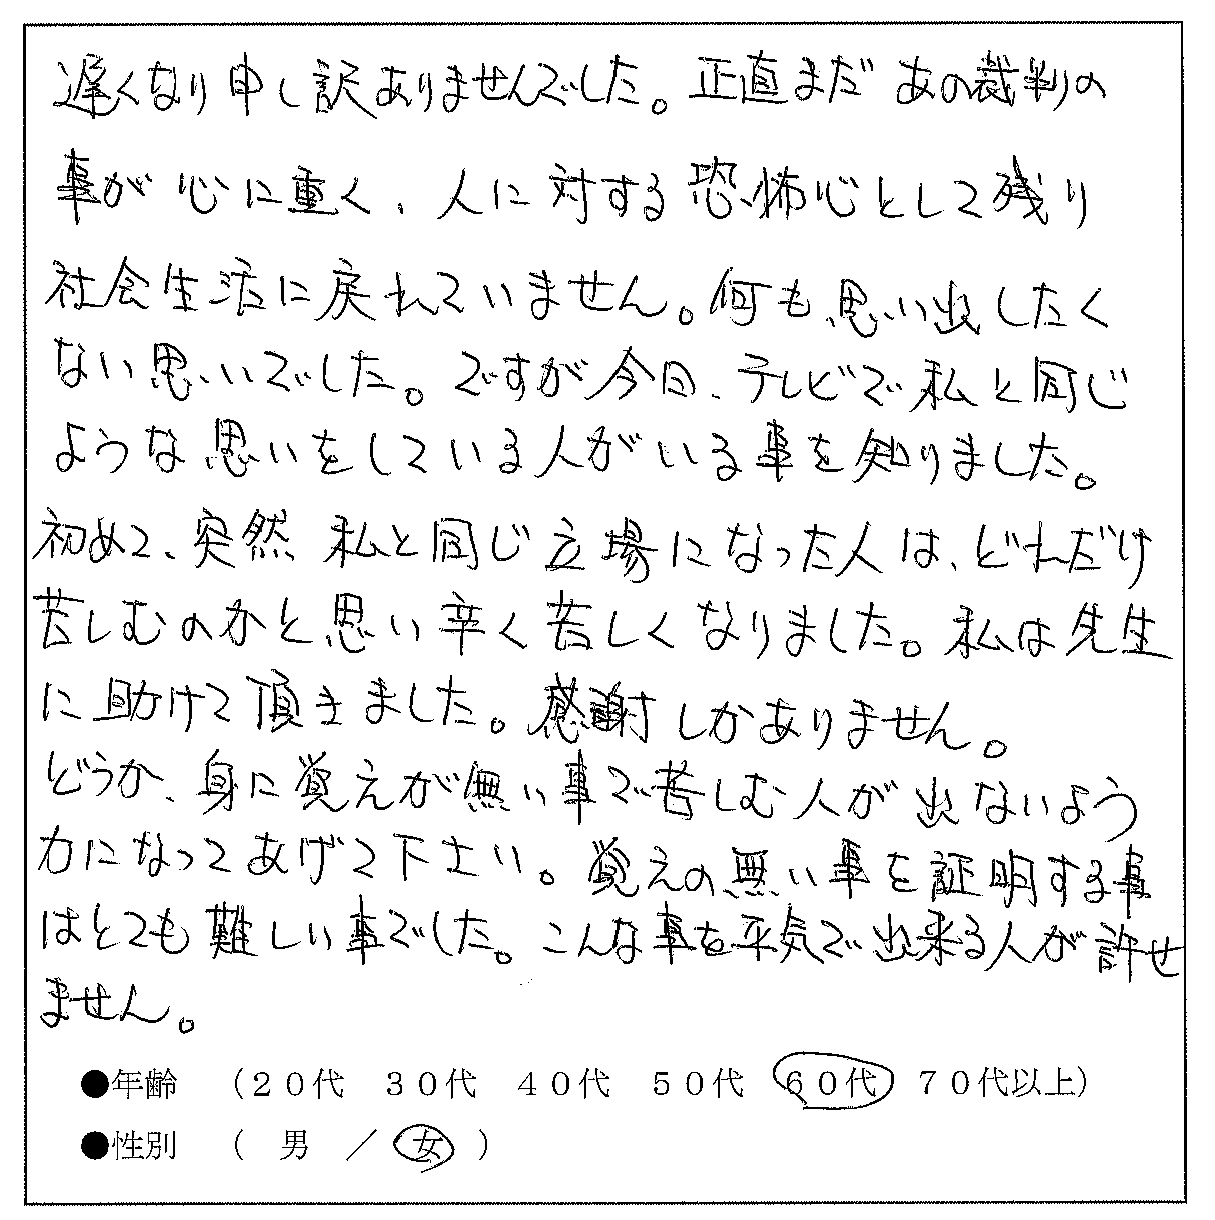 遅くなり申し訳ありませんでした。正直まだあの裁判の
事が心に重く、人に対する恐怖心として残り
社会生活に戻れていません。何も思い出したく
ない思いでした。ですが今日、テレビで私と同じ
ような思いをしている人がいる事を知りました。
初めて、突然、私と同じ立場になった人は、どれだけ
苦しむのかと思い辛く苦しくなりました。私は先生
に助けて頂きました。感謝しかありません。
どうか、身に覚えが無い事で苦しむ人が出ないよう
力になってあげて下さい。覚えの無い事を証明する事
はとても難しい事でした。こんな事を平気で出来る人が許せ
ません。
●年齢 （２０代 ３０代 ４０代 ５０代 ６０代 ７０代以上）
●性別 （ 男 ／ 女 ）